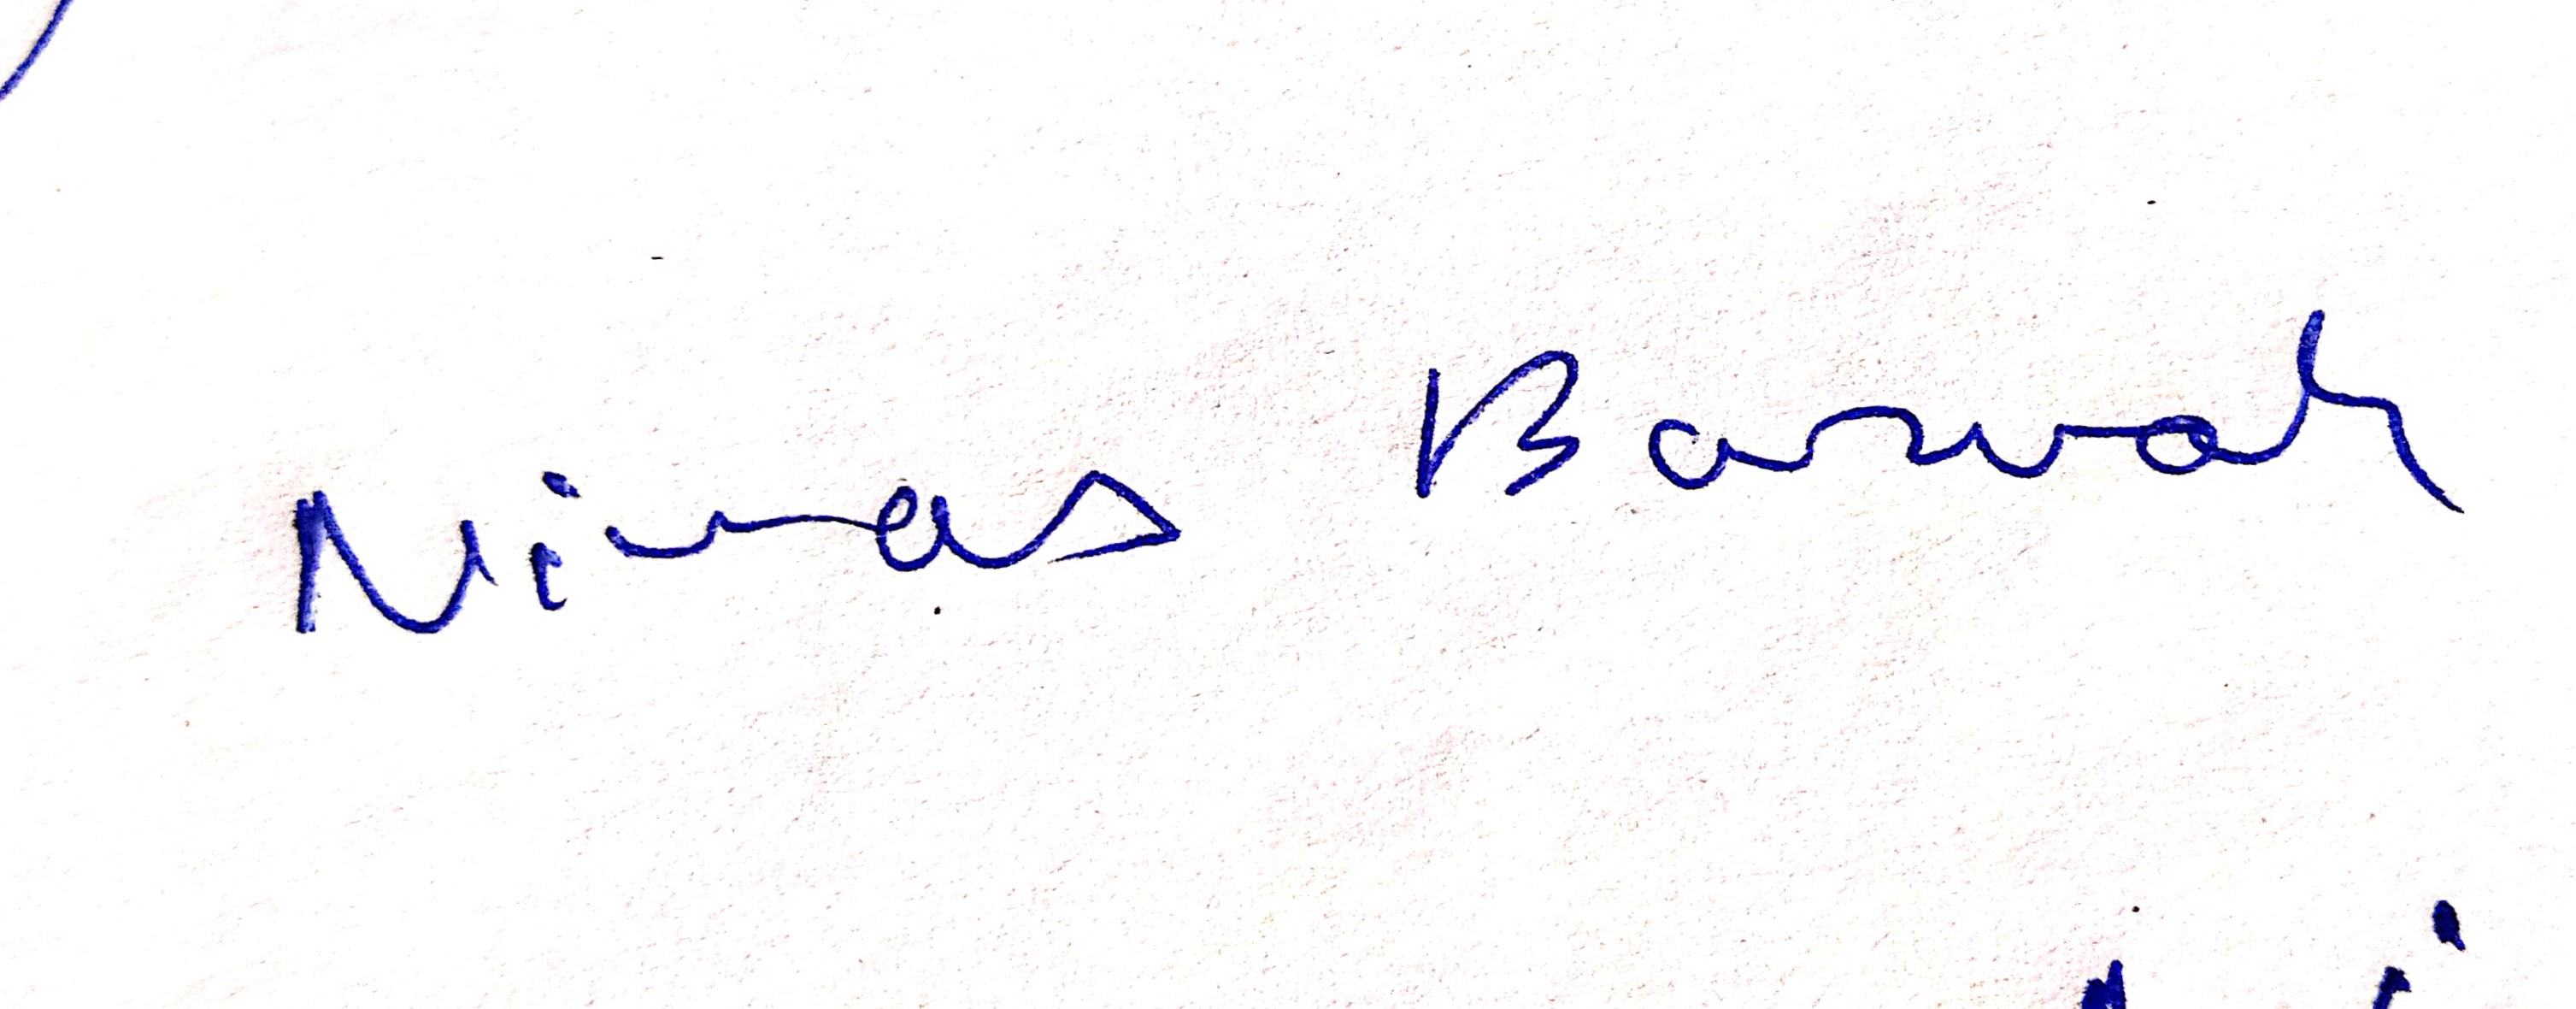 Nivas Barwah